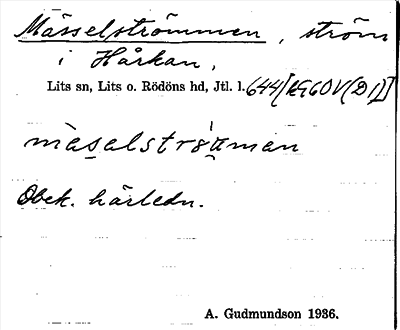 Mässelströmmen, ström
i Hårkan,
Lits sn, Lits o. Rödöns hd, Jtl. l. 644
mäsalströman
Obek. härledn.
A. Gudmundson 1936.